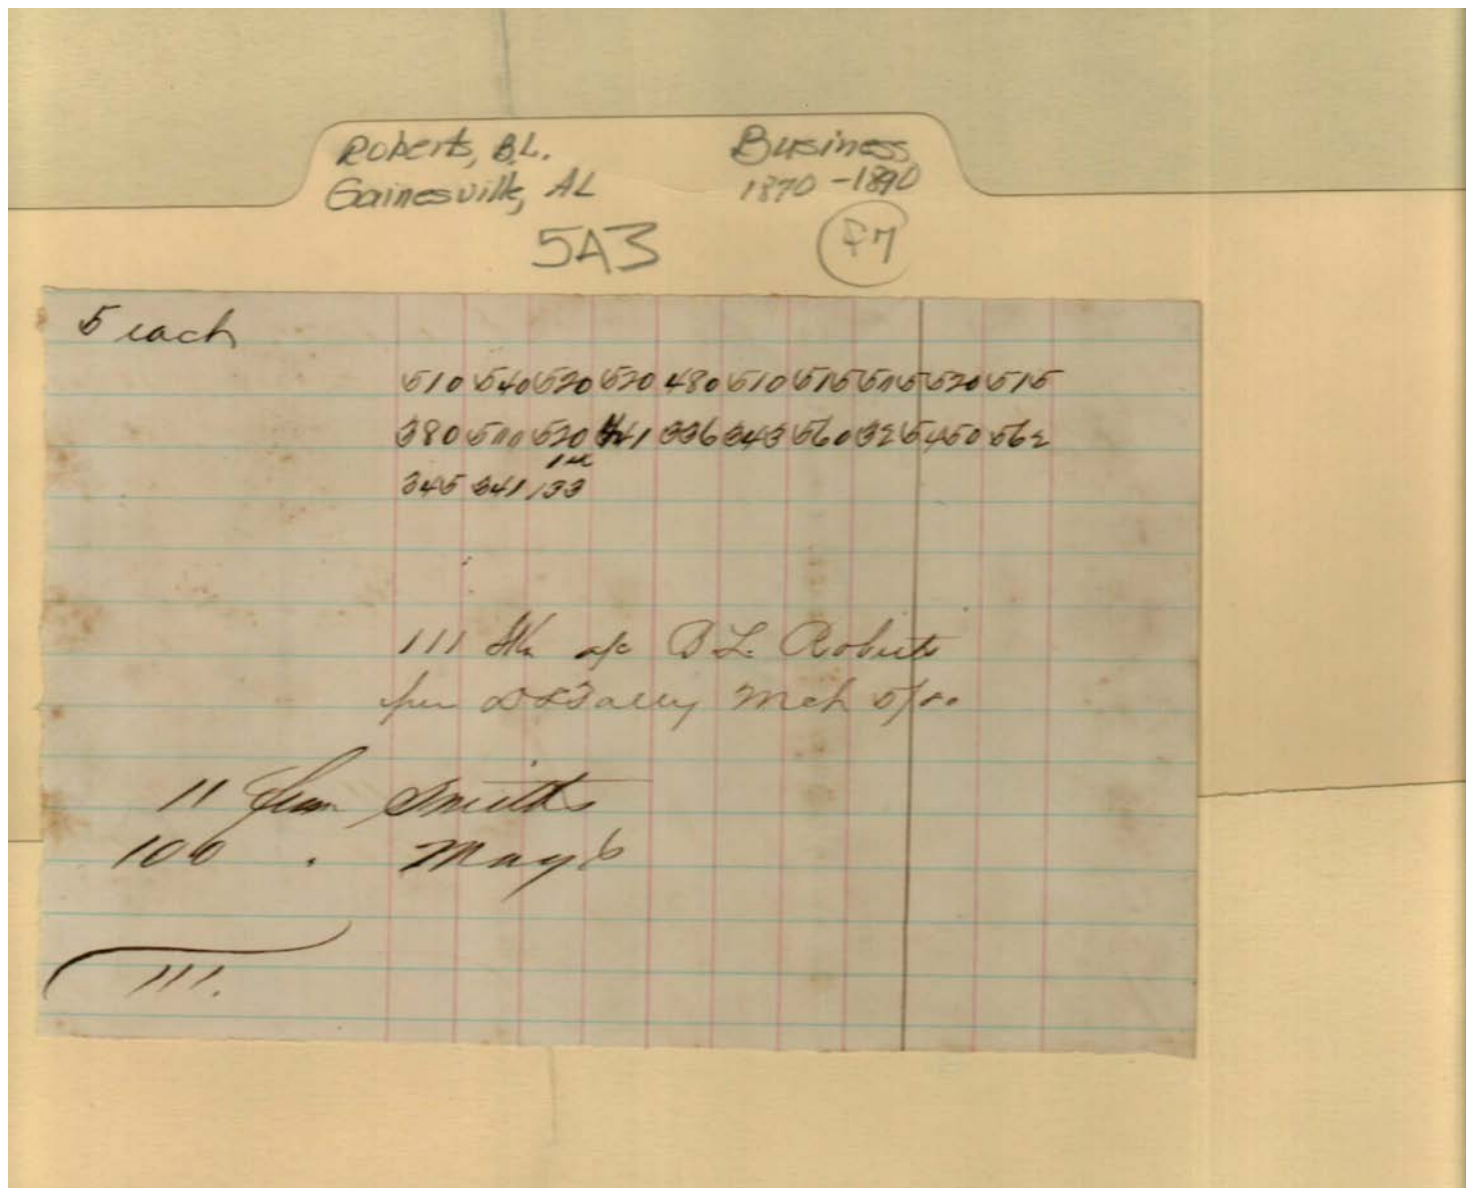 Roberts, B.L.
Gainesville, AL
Business
1870-1890
5A3
F7
5 each
510 540 520 520 480 510 515 515 520 515
380 500 520 341 336 343 560 325 450 562
1 sk
345 341 133
111 Sks a/c B L. Roberts
per Tally Mch 5/80
11 from Smiths
106 . May
111.